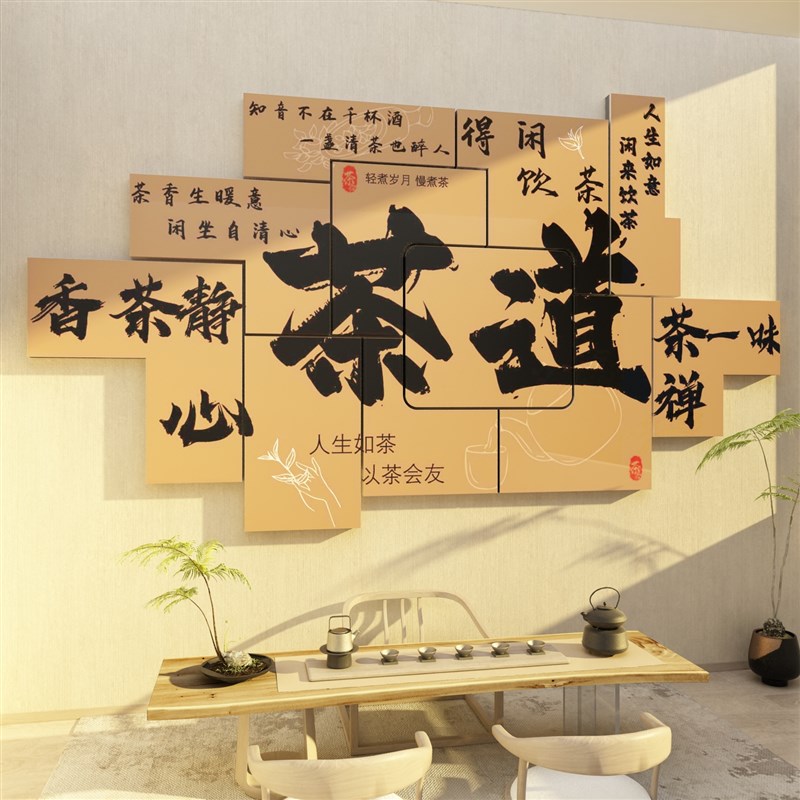 知音不在千杯酒
一盏清茶也醉人
得闲
饮茶
人生如意
闲来饮茶,
轻煮岁月 慢煮茶
茶香生暖意
闲坐自清心
茶道
香茶静
心
茶一味
禅
人生如茶
以茶会友